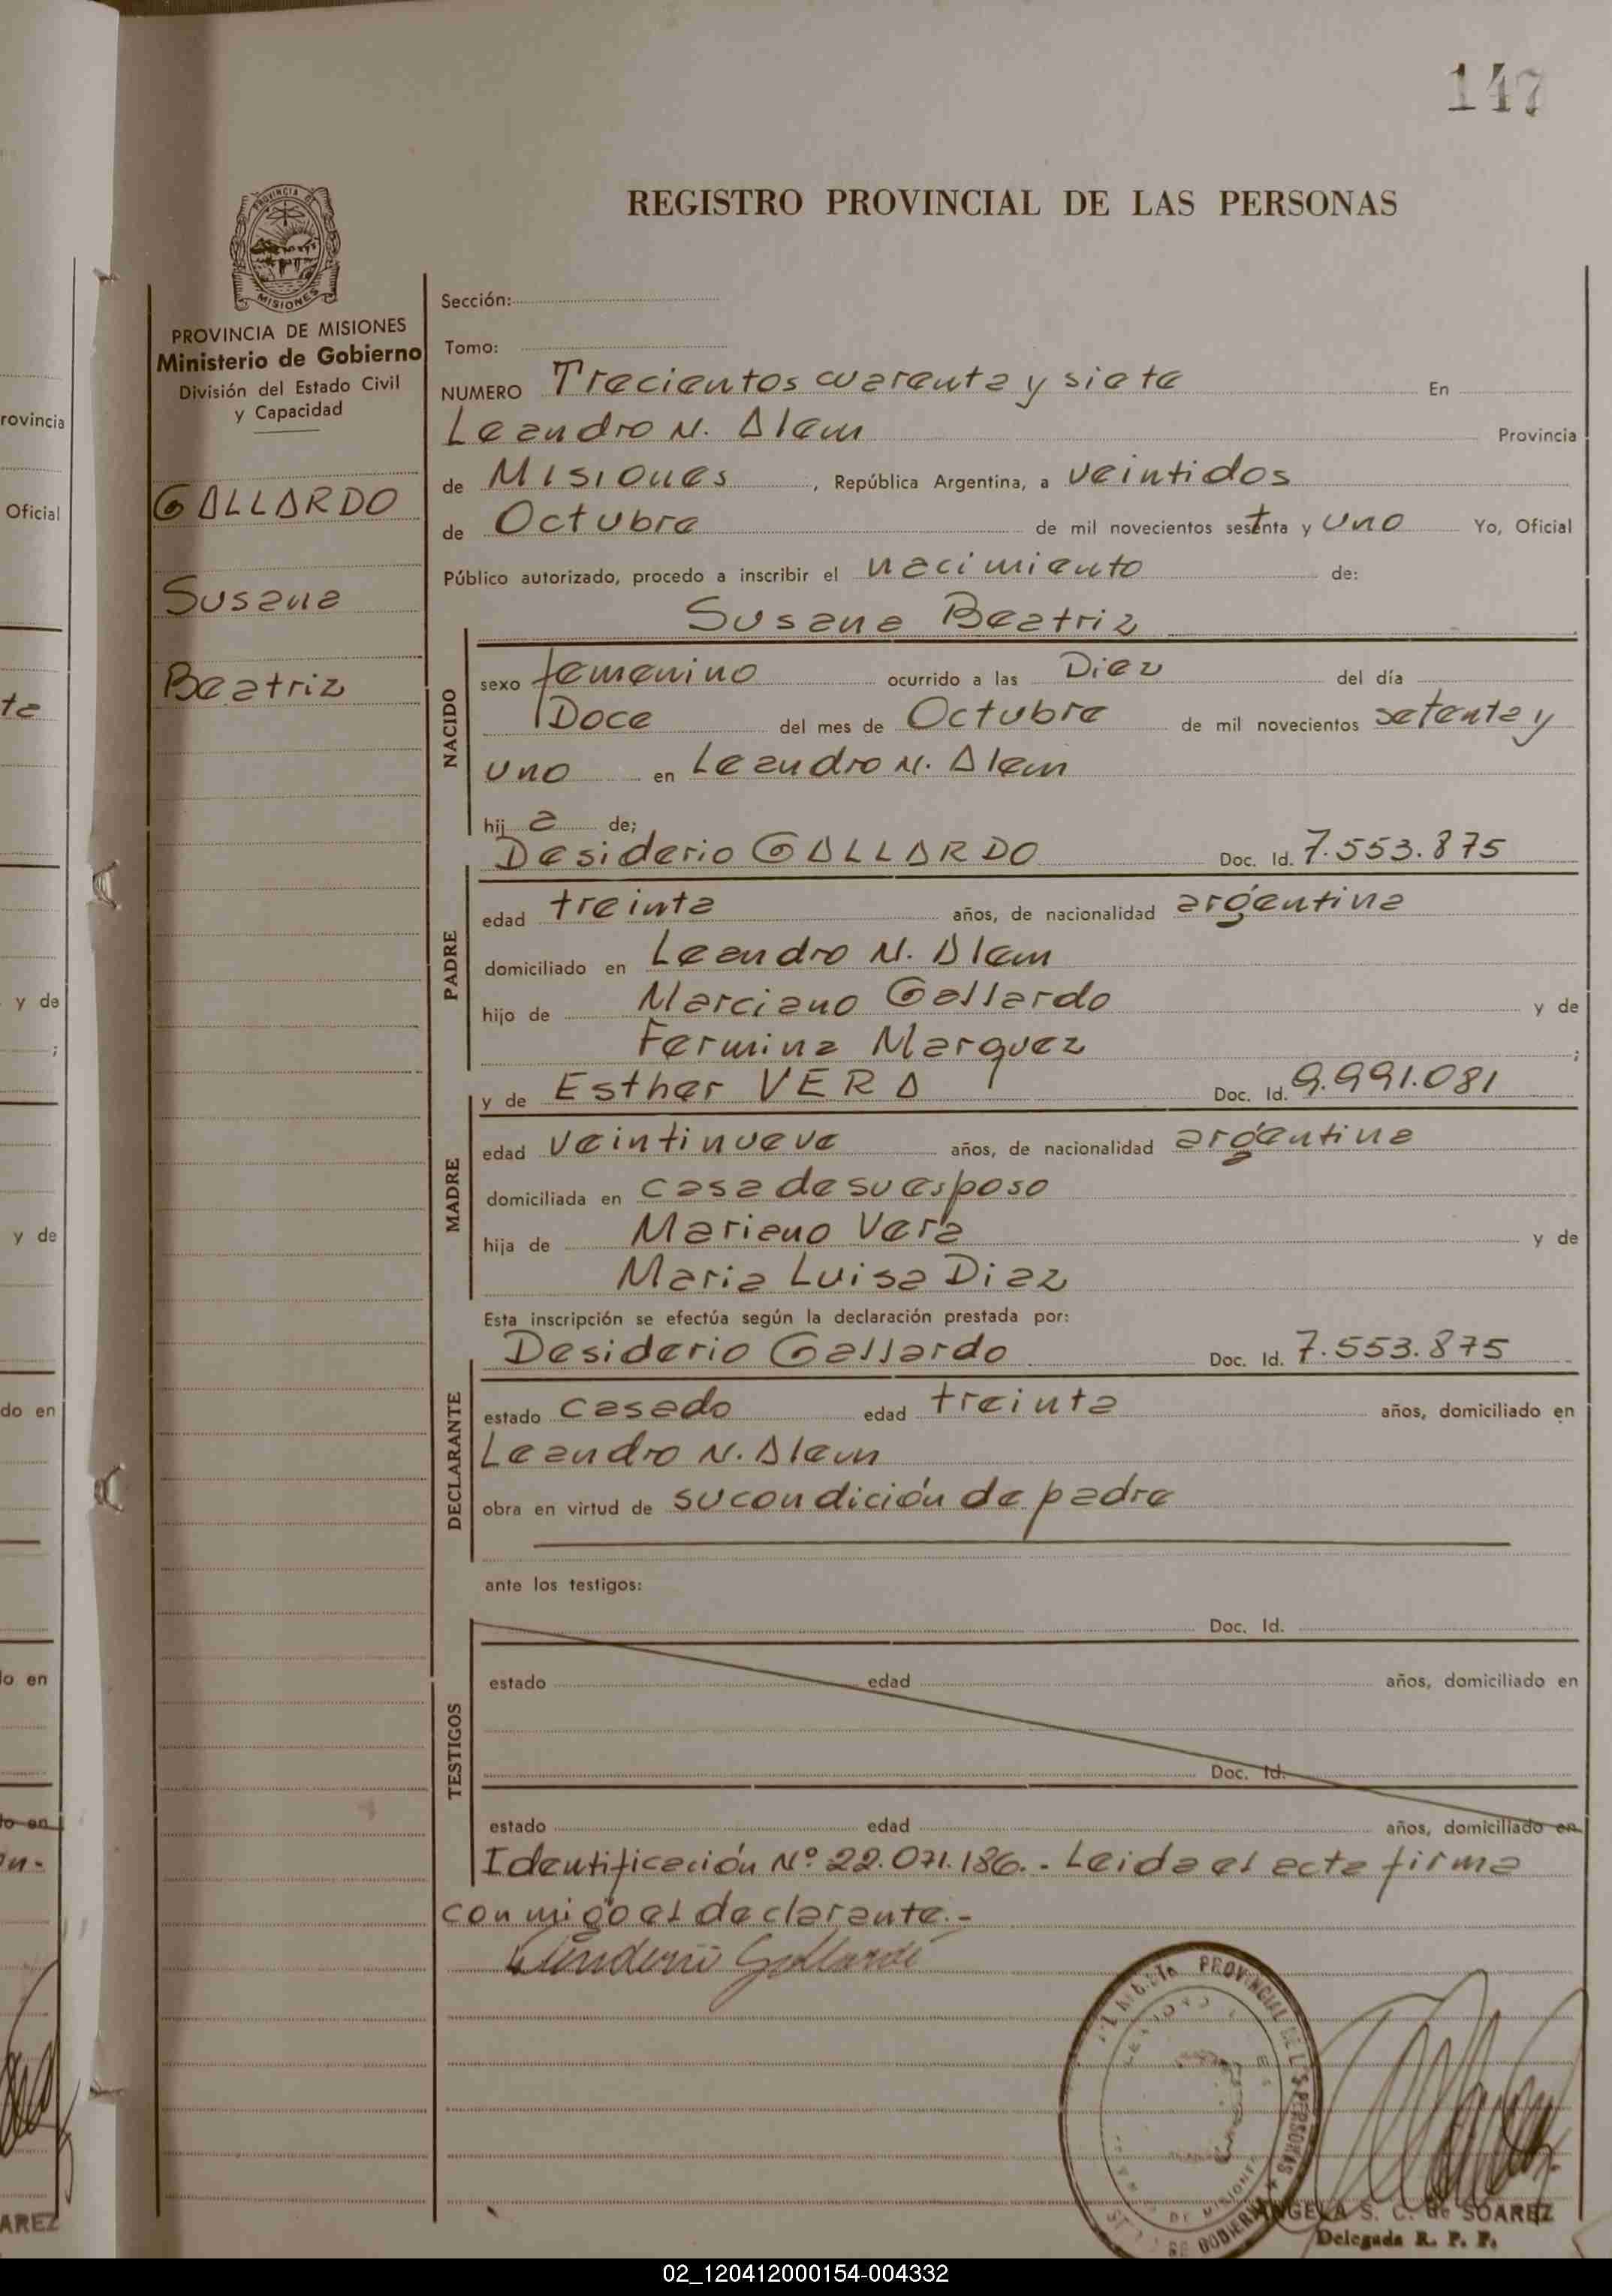 147
REGISTRO PROVINCIAL DE LAS PERSONAS
PROVINCIA
MISIONES
PROVINCIA DE MISIONES
Ministerio de Gobierno
División del Estado Civil
y Capacidad
GALLARDO
Susana
Beatriz
Sección:
Tomo:
NUMERO Trecientos cuarenta y siete En
Leandro N. Alem Provincia
de Misiones, República Argentina, a veintidos
de Octubre de mil novecientos setenta y uno Yo, Oficial
Público autorizado, procedo a inscribir el nacimiento de:
Susana Beatriz
NACIDO
sexo femenino ocurrido a las Diez del día
Doce del mes de Octubre de mil novecientos setenta y
uno en Leandro N. Alem
hij a de;
Desiderio GALLARDO Doc. Id. 7.553.875
PADRE
edad treinta años, de nacionalidad argentina
domiciliado en Leandro N. Alem
hijo de Marciano Gallardo y de
Fermina Marquez ;
y de Esther VERA Doc. Id. 9.991.081
MADRE
edad veintinueve años, de nacionalidad argentina
domiciliada en casa de su esposo
hija de Mariano Vera y de
Maria Luisa Diaz
Esta inscripción se efectúa según la declaración prestada por:
Desiderio Gallardo Doc. Id. 7.553.875
DECLARANTE
estado casado edad treinta años, domiciliado en
Leandro N. Alem
obra en virtud de su condición de padre
ante los testigos:
Doc. Id.
TESTIGOS
estado edad años, domiciliado en
Doc. Id.
estado edad años, domiciliado en
Identificación Nº 22.071.186.- Leida el acta firma
conmigo el declarante.-
Gallardo
PROVINCIAL DE LAS PERSONAS
DE MISIONES
ANGELA S. C. de SOAREZ
Delegada R. P. P.
rovincia
Oficial
ta
y de
;
y de
do en
lo en
to en
AREZ
02_120412000154-004332